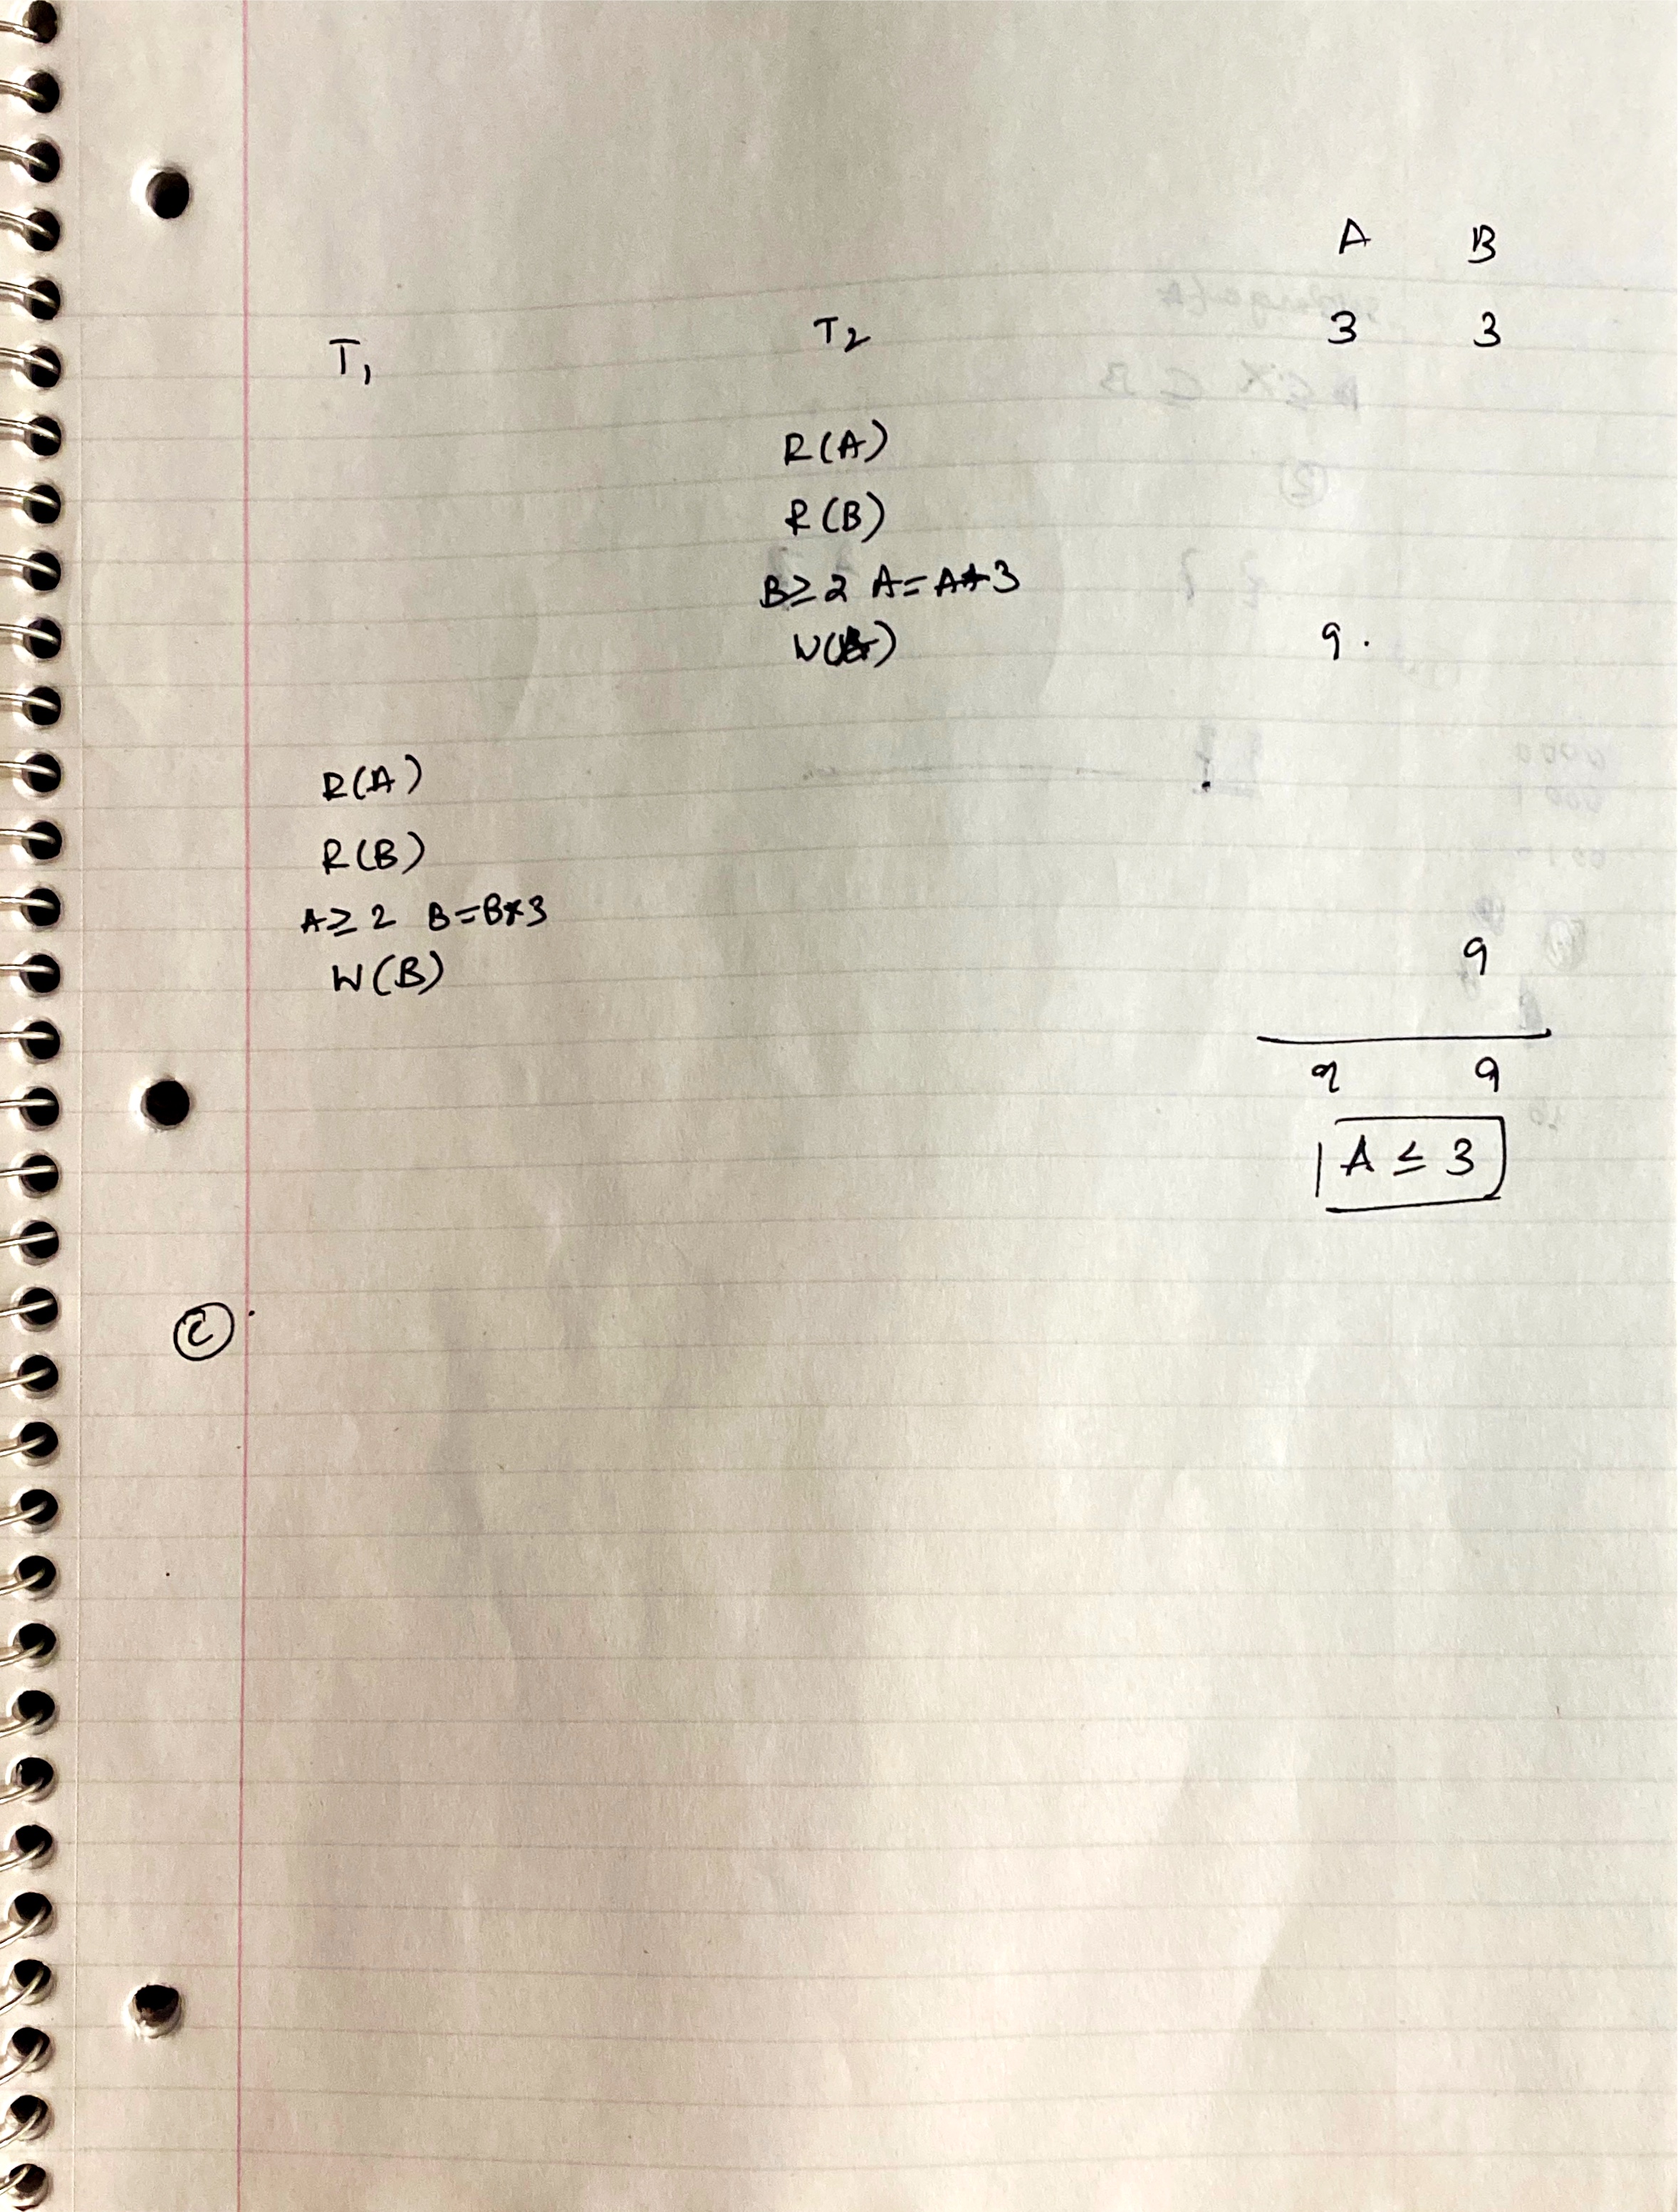 A B
T1 T2 3 3
R(A)
R(B)
B≥2 A=A*3
W(A) 9.
R(A)
R(B)
A≥2 B=B*3
W(B) 9
9 9
A ≤ 3
C